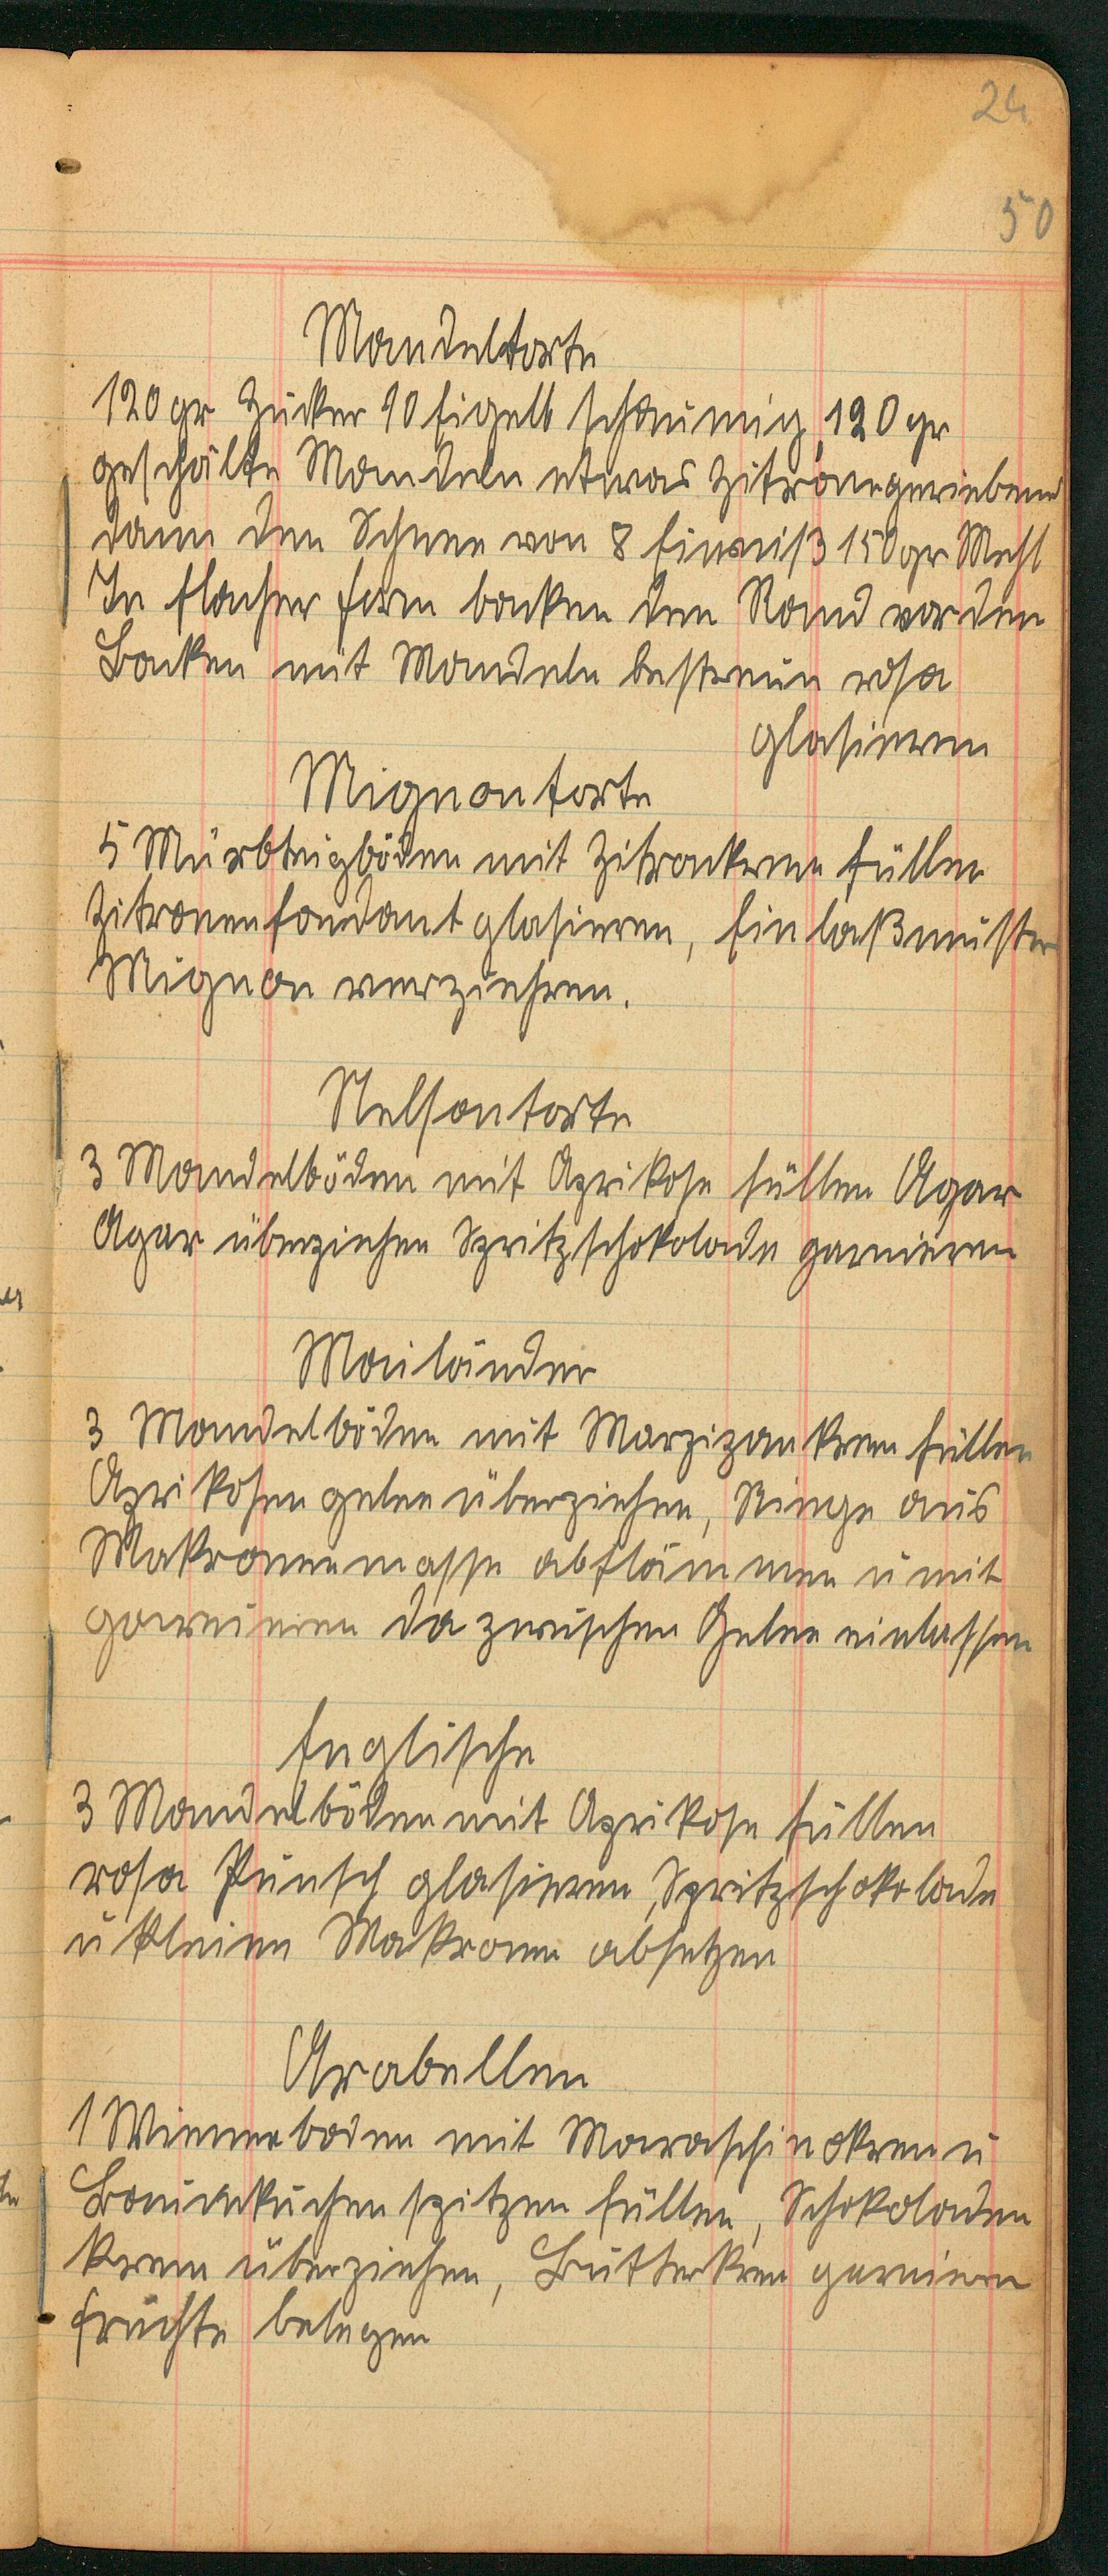 24
50
Mandeltorte
120 gr Zucker 10 Eigelb schaumig, 120 gr
geschälte Mandeln etwas Zitrone geriebene
dann den Schnee von 8 Eineiß 150 gr Mehl
In flacher Form backen den Rand vor den
Backen mit Mandeln bestreun rosa
glasieren
Mignontorte
5 Mürbteigböden mit Zitronkrem füllen
Zitronenfondant glasieren, Einlaßmuster
Mignon verziehren.
Nelsontorte
3 Mandelböden mit Aprikose füllen Agar
Agar überziehen Spritzschokolade garnieren
Mailänder
3 Mandelböden mit Marzipankrem füllen
Aprikosengelee überziehen, Ringe aus
Makronenmasse abflämmen u mit
garnieren da zwischen Gelee einlassen
Englische
3 Mandelböden mit Aprikose füllen
rosa Punsch glasieren, Spritzschokolade
u kleinen Makronen absetzen
Arabellen
1 Wienerboden mit Maraschinokrem u
Baumkuchenspitzen füllen, Schokoladen
krem überziehen, Butterkrem garnieren
Früchte belegen